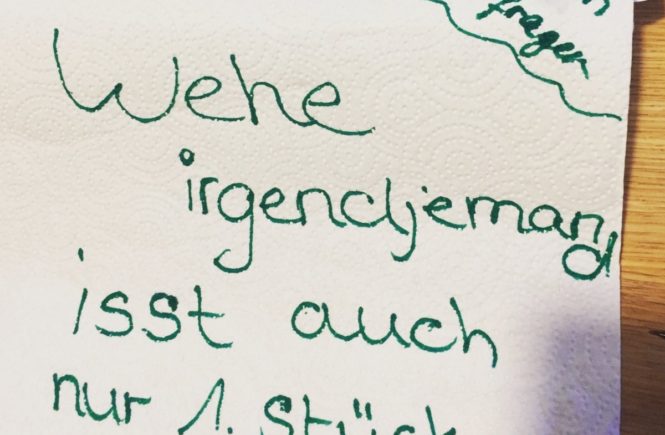 fragen
Wehe
irgendjemand
isst auch
nur 1. Stück